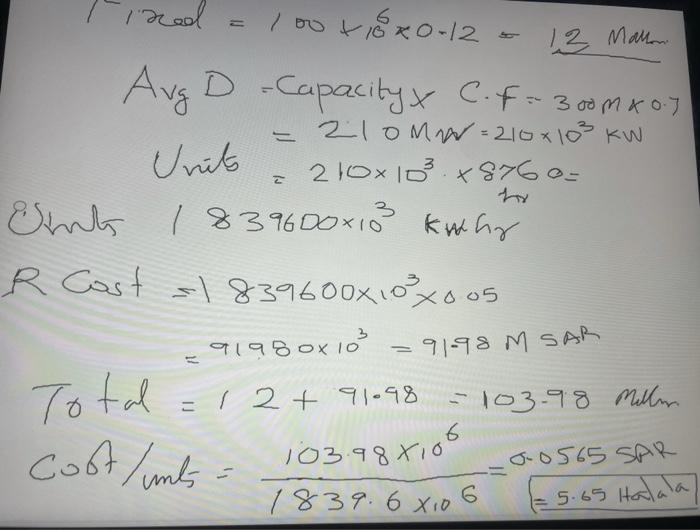 Fixed = 100 × 10⁶ × 0.12 = 12 Million
Avg D = Capacity × C.f = 300M × 0.7
= 210 MW = 210 × 10³ KW
Units = 210 × 10³ × 8760 =
hr
Units 1839600 × 10³ kwhr
R Cost = 1839600 × 10³ × 0.05
= 91980 × 10³ = 91.98 M SAR
Total = 12 + 91.98 = 103.98 Million
Cost/units = 103.98 × 10⁶ / 1839.6 × 10⁶ = 0.0565 SAR
= 5.65 Halala